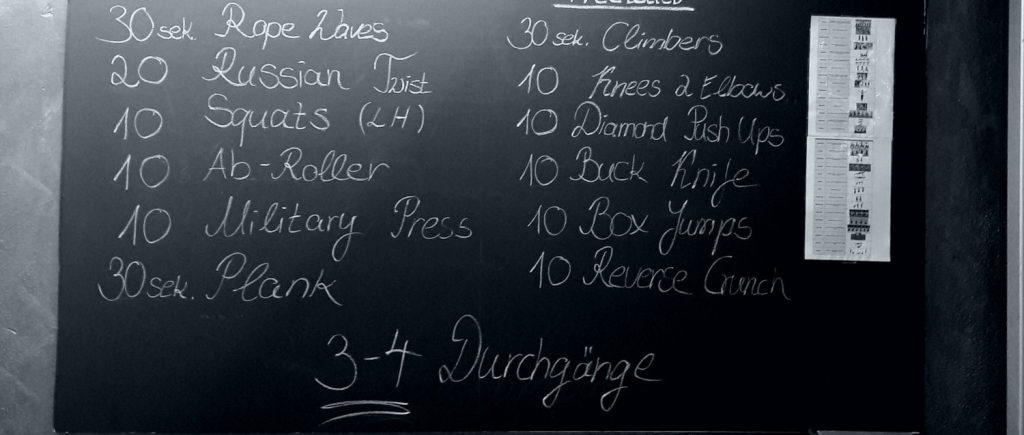 30 sek. Rope Waves
20 Russian Twist
10 Squats (LH)
10 Ab-Roller
10 Military Press
30 sek. Plank
30 sek. Climbers
10 Knees 2 Elbows
10 Diamond Push Ups
10 Buck Knife
10 Box Jumps
10 Reverse Crunch
3-4 Durchgänge